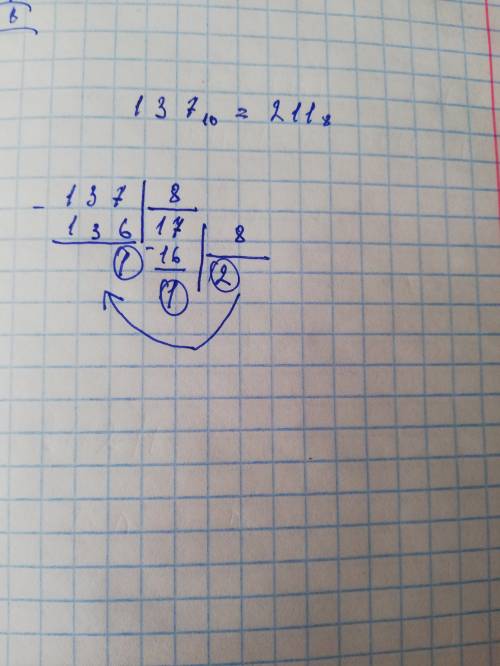 в
137₁₀ = 211₈
- 137 | 8
136 | 17 | 8
1 - 16 | 2
1